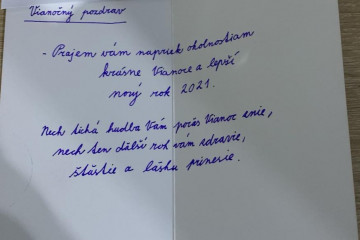 Vianočný pozdrav
- Prajem vám napriek okolnostiam
krásne Vianoce a lepší
nový rok 2021.
Nech tichá hudba Vám počas Vianoc znie,
nech ten ďalší rok vám zdravie,
šťastie a lásku prinesie.